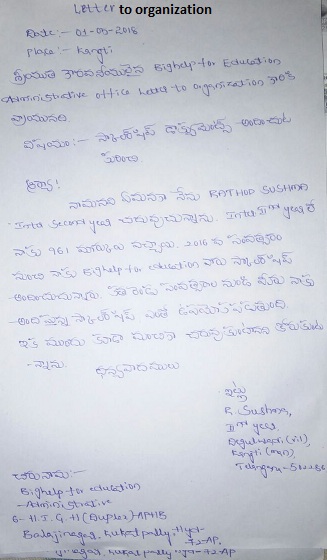 Letter to organization
Date :- 01-09-2016
Place :- Kangti
శ్రీయుత గౌరవనీయులైన Bighelp for Education
Administrative office Letter to organisation
వ్రాయునది
విషయం:- స్కాలర్‌షిప్ డాక్యుమెంట్స్ అందుట
గురించి
ఆర్యా!
నామనవి ఏమనగా నేను RATHOD SUSHMA
Inter Second year చదువుచున్నాను. Inter Ist year లో
నాకు 961 మార్కులు వచ్చాయి. 2016 వ సంవత్సరం
నుంచి నాకు Bighelp for education వారు స్కాలర్‌షిప్
అందించుచున్నారు. ఈ రెండు సంవత్సరాల నుండి మీరు నాకు
అందిస్తున్న స్కాలర్‌షిప్ ఎంతో ఉపయోగపడుతుంది.
ఇక ముందు కూడా మంచిగా చదువుతానని కోరుతు
న్నాను.
ధన్యవాదములు
ఇట్లు
R. Sushma,
IInd year
Degulwadi (vil),
Kangti (man),
Telangana-
చిరునామ:-
Bighelp for education
-Administrative
6-H.I.G-H1(Duplex)-APHB
Balajinagar, kukatpally, Hyd-
-72-AP.